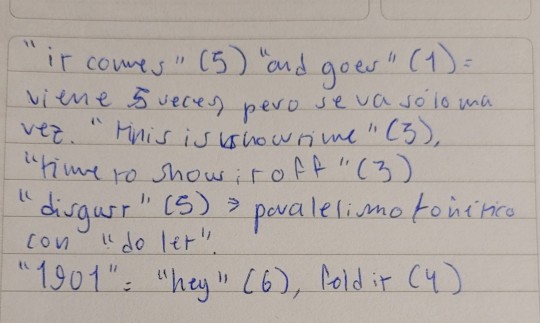 "it comes" (5) "and goes" (1) =
viene 5 veces, pero se va sólo una
vez. "this is showtime" (3),
"time to show it off" (3)
"disgust" (5) → paralelismo fonético
con "do let".
"1901" = "hey" (6), fold it (4)